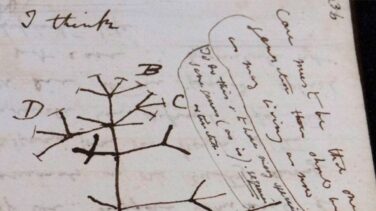 I think
36
Case must be that one
generation then should be
as many living as now
To do this & to have many species
in same genus (as is) requires
extinction.
B
C
D